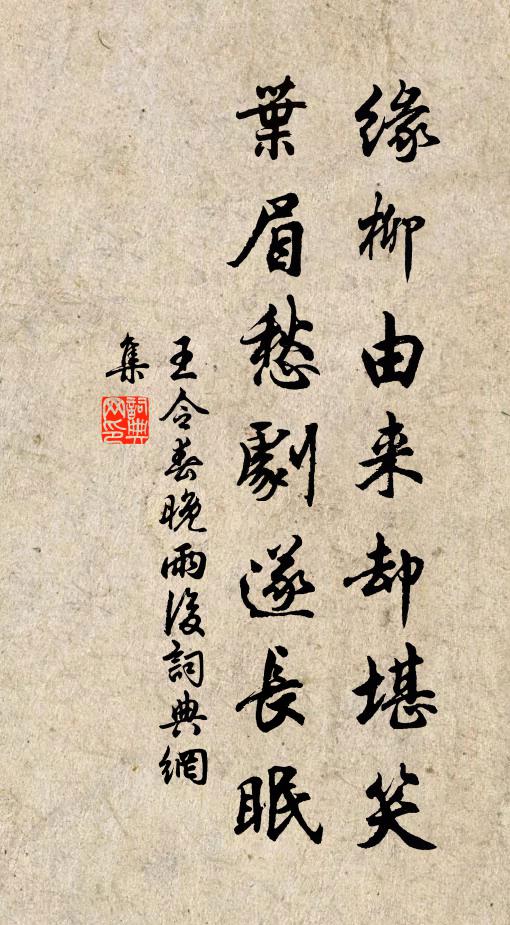 緣柳由来却堪笑
葉眉愁劇遂長眠
王令春晚雨後詞典網
集
詞典
网印